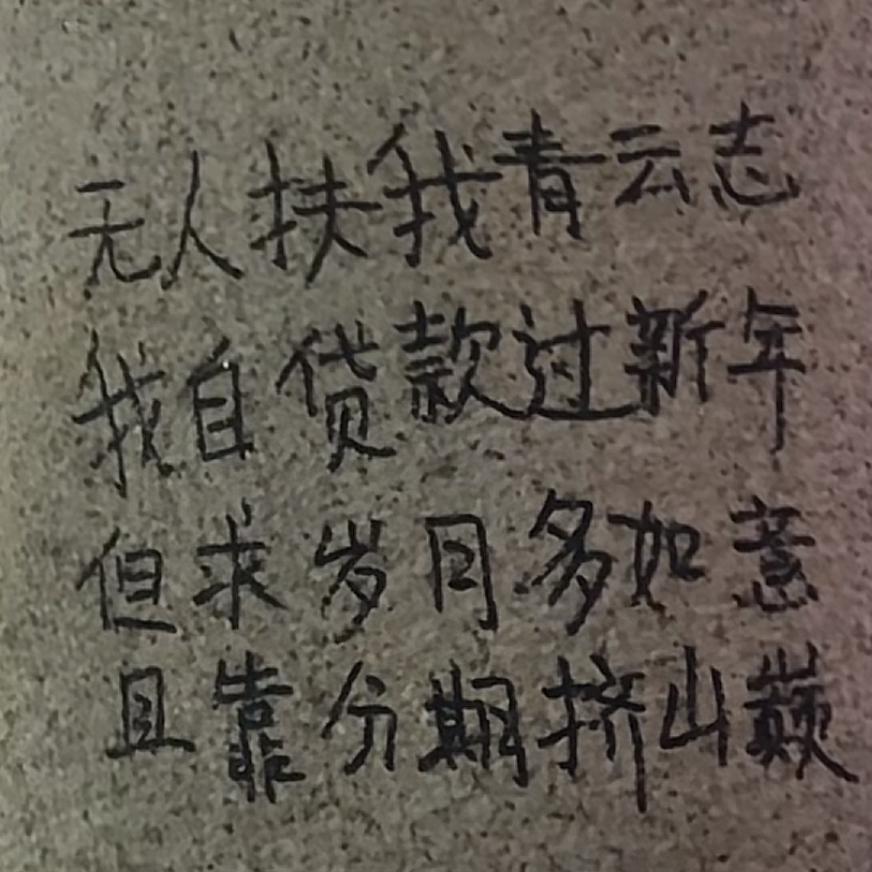 无人扶我青云志
我自贷款过新年
但求岁月多如意
且靠分期挤山巅